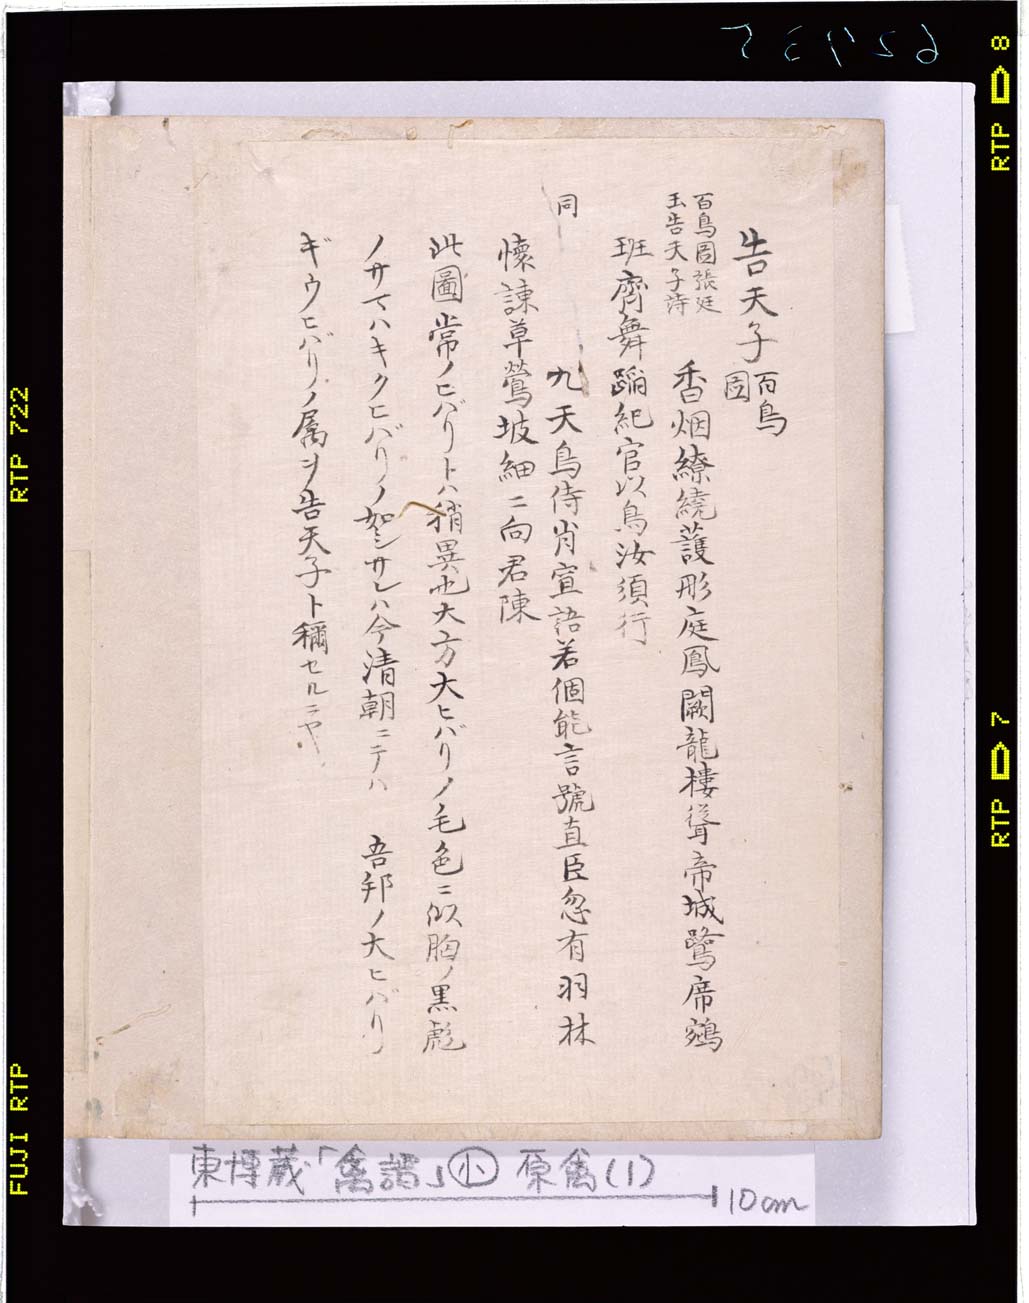 告天子 百鳥
圖
百鳥圖張廷
玉告天子詩
香烟繚繞護彤庭鳳闕龍樓聳帝城鷺席鵷
班齊舞蹈紀官以鳥汝須行
同 九天鳥侍肖宣語若個能言號直臣忽有羽林
懷諫草鶯坡細ニ向君陳
此圖常ノヒバリトハ稍異也大方大ヒバリノ毛色ニ似胸ノ黒彪
ノサマハキクヒバリノ如シサレハ今清朝ニテハ 吾邦ノ大ヒバリ
ギウヒバリノ属ヲ告天子ト稱セルニヤ
東博蔵「禽譜」小 原禽(1)
10cm
RTP 8
RTP 7
RTP 722
FUJI RTP